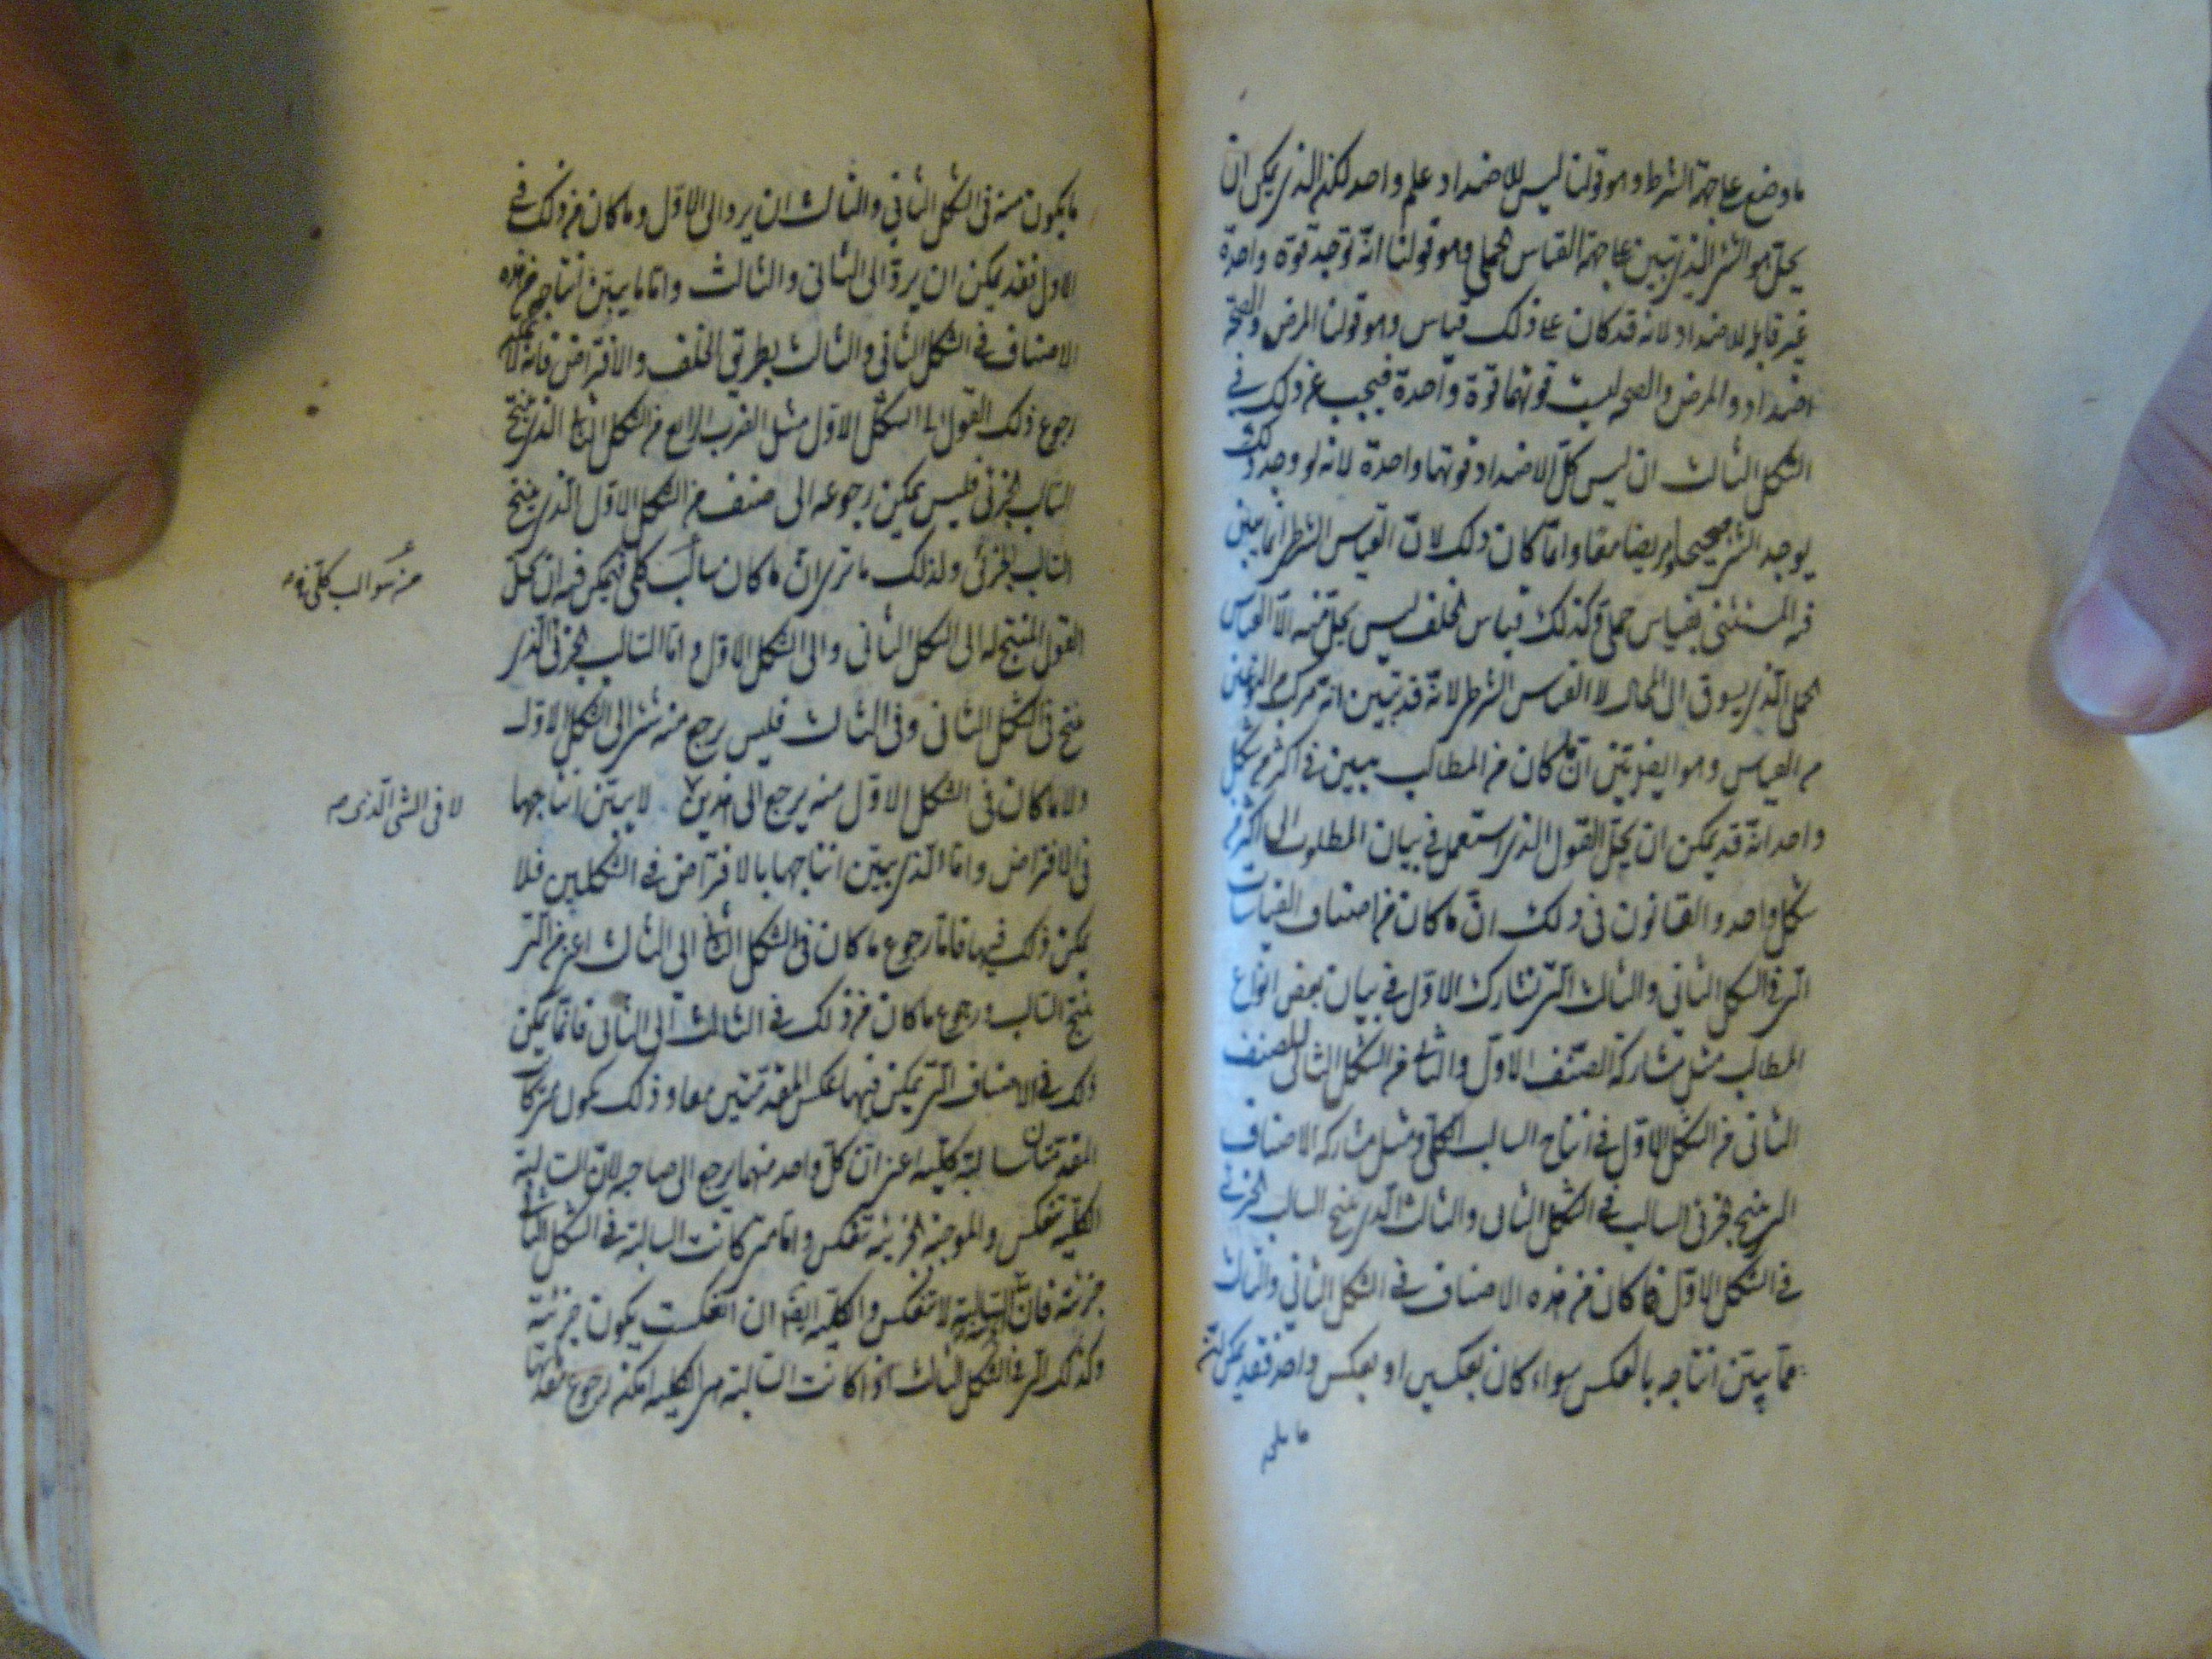 ما وضع على جهة الشرط وهو قولنا ليس للاضداد علم واحد لكنه الذي يمكن ان
يحل هو الشيء الذي تبين على جهة القياس الحملي وهو قولنا انه توجد قوة واحدة
غير قابلة للاضداد لانه قد كان على ذلك قياس وهو قولنا المرض والصحة
اضداد والمرض والصحة ليست قوتهما قوة واحدة فيجب عن ذلك في
الشكل الثالث ان ليس كل الاضداد قوتها واحدة لانه لو وجد ذلك
يوجد الشيء صحيحا ومريضا معا وانما كان ذلك لان القياس الشرطي انما يبين
فيه المستثنى بقياس حملي وكذلك قياس الخلف ليس يحل منه الا القياس
الحملي الذي يسوق الى المحال لا القياس الشرطي لانه قد تبين انه مركب من النوعين
من القياس وهو ايضا بين ان ما كان من المطالب يبين في اكثر من شكل
واحد انه قد يمكن ان يحل القول الذي استعمل في بيان المطلوب الى اكثر من
شكل واحد والقانون في ذلك ان ما كان من اصناف القياسات
التي في الشكل الثاني والثالث التي تشارك الاول في بيان بعض انواع
المطالب مثل مشاركة الصنف الاول والثاني من الشكل الثاني للصنف
الثاني من الشكل الاول في انتاج السالب الكلي ومثل مشاركة الاصناف
التي تنتج الجزئي السالب في الشكل الثاني والثالث الذي ينتج السالب الجزئي
في الشكل الاول فما كان من هذه الاصناف في الشكل الثاني والثالث
مما يبين انتاجه بالعكس سواء كان بعكسين او بعكس واحد فقد يمكن
ما يكون منه في الشكل الثاني والثالث ان يرد الى الاول وما كان من ذلك في
الاول فقد يمكن ان يرد الى الثاني والثالث واما ما يبين انتاجه من هذه
الاصناف في الشكل الثاني والثالث بطريق الخلف والافتراض فانه لا يمكن
رجوع ذلك القول الى الشكل الاول مثل الضرب الرابع من الشكل الثاني الذي ينتج
السالب الجزئي فليس يمكن رجوعه الى صنف من الشكل الاول الذي ينتج
السالب الجزئي ولذلك ما نرى ان ما كان سالب كلي فيمكن فيه ان كل
منه سوالب كلي فيه
القول المنتج له الى الشكل الثاني والى الشكل الاول واما السالب الجزئي الذي
ينتج في الشكل الثاني وفي الثالث فليس يرجع منه شيء الى الشكل الاول
ولا ما كان في الشكل الاول منه يرجع الى هذين لا يبين انتاجها
لا في الشيء الذي
في الافتراض واما الذي يبين انتاجها بالافتراض في الشكلين فلا
يمكن ذلك فيها فاما رجوع ما كان في الشكل الثاني الى الثالث اعني من التي
تنتج السالب ورجوع ما كان من ذلك في الثالث الى الثاني فانما يمكن
ذلك في الاصناف التي يمكن فيها عكس المقدمتين معا وذلك يكون متى كانت
المقدمتان سالبة كلية اعني ان كل واحد منهما يرجع الى صاحبه لان السالبة
الكلية تنعكس والموجبة الجزئية تنعكس واما متى كانت السالبة في الشكل الثالث
جزئية فان السالبة لا تنعكس والكلية ايضا ان انعكست يكون جزئية
وكذلك التي في الشكل الثالث اذا كانت السالبة هي الكلية امكنه رجوع